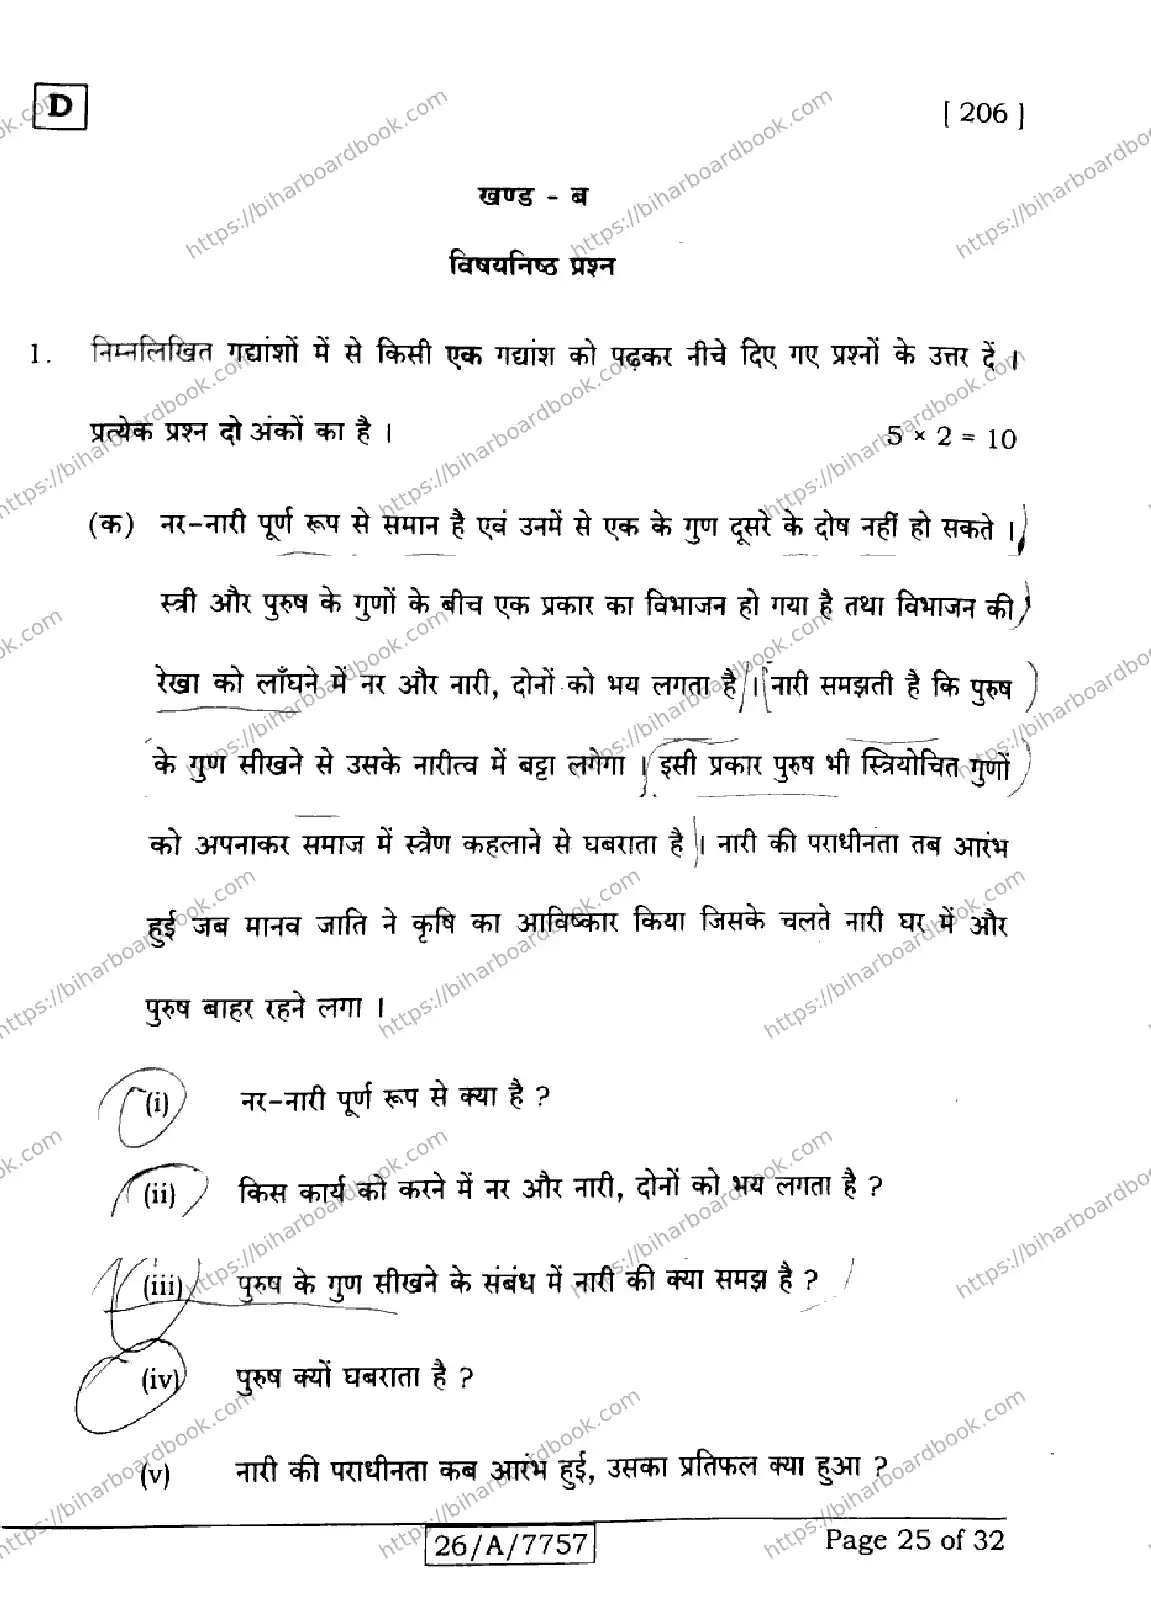 D
[ 206 ]
खण्ड - ब
विषयनिष्ठ प्रश्न
1. निम्नलिखित गद्यांशों में से किसी एक गद्यांश को पढ़कर नीचे दिए गए प्रश्नों के उत्तर दें ।
प्रत्येक प्रश्न दो अंकों का है । 5 × 2 = 10
(क) नर-नारी पूर्ण रूप से समान है एवं उनमें से एक के गुण दूसरे के दोष नहीं हो सकते ।
स्त्री और पुरुष के गुणों के बीच एक प्रकार का विभाजन हो गया है तथा विभाजन की
रेखा को लाँघने में नर और नारी, दोनों को भय लगता है । नारी समझती है कि पुरुष
के गुण सीखने से उसके नारीत्व में बट्टा लगेगा । इसी प्रकार पुरुष भी स्त्रियोचित गुणों
को अपनाकर समाज में स्त्रैण कहलाने से घबराता है । नारी की पराधीनता तब आरंभ
हुई जब मानव जाति ने कृषि का आविष्कार किया जिसके चलते नारी घर में और
पुरुष बाहर रहने लगा ।
(i) नर-नारी पूर्ण रूप से क्या है ?
(ii) किस कार्य को करने में नर और नारी, दोनों को भय लगता है ?
(iii) पुरुष के गुण सीखने के संबंध में नारी की क्या समझ है ?
(iv) पुरुष क्यों घबराता है ?
(v) नारी की पराधीनता कब आरंभ हुई, उसका प्रतिफल क्या हुआ ?
26/A/7757
Page 25 of 32
https://biharboardbook.com